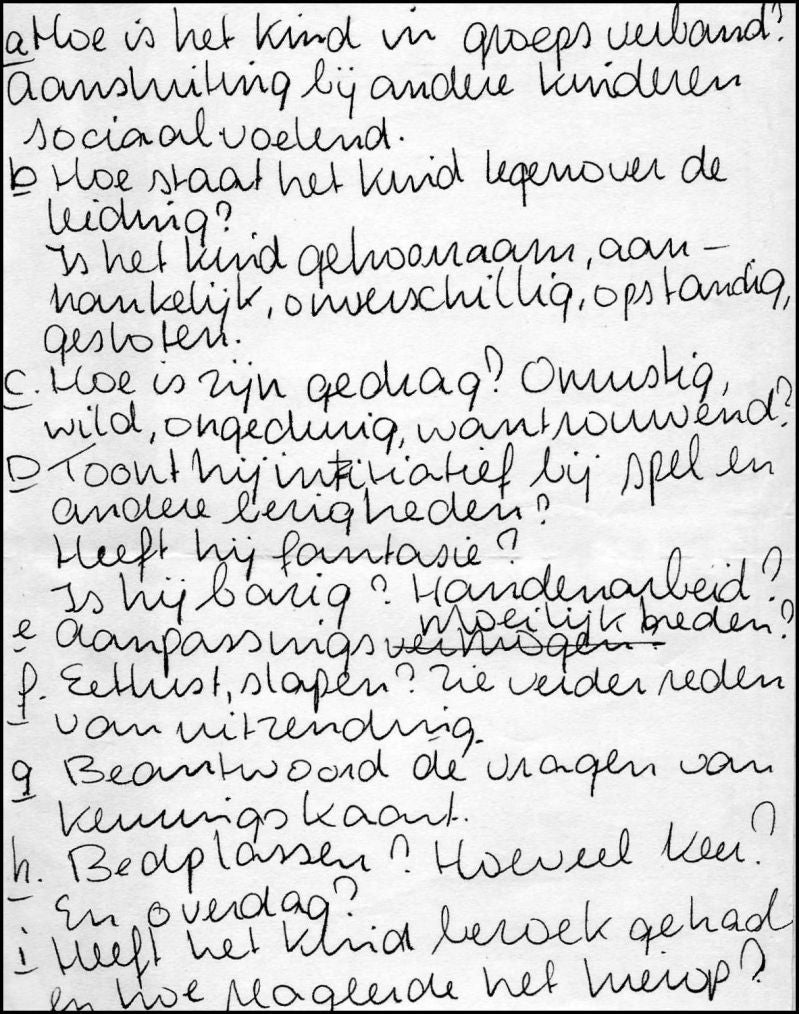 a Hoe is het kind in groepsverband?
Aansluiting bij andere kinderen
sociaalvoelend.
b Hoe staat het kind tegenover de
leiding?
Is het kind gehoorzaam, aan-
hankelijk, onverschillig, opstandig,
gesloten.
c. Hoe is zijn gedrag? Onrustig,
wild, ongedurig, wantrouwend?
D Toont hij initiatief bij spel en
andere bezigheden?
Heeft hij fantasie?
Is hij bazig? Handenarbeid?
moeilijkheden?
e Aanpassingsvermogen.
f. Eetlust, slapen? Zie verder reden
van uitzending.
g Beantwoord de vragen van
kenningskaart.
h. Bedplassen? Hoeveel keer?
En overdag?
i Heeft het kind bezoek gehad
en hoe reageerde het hierop?